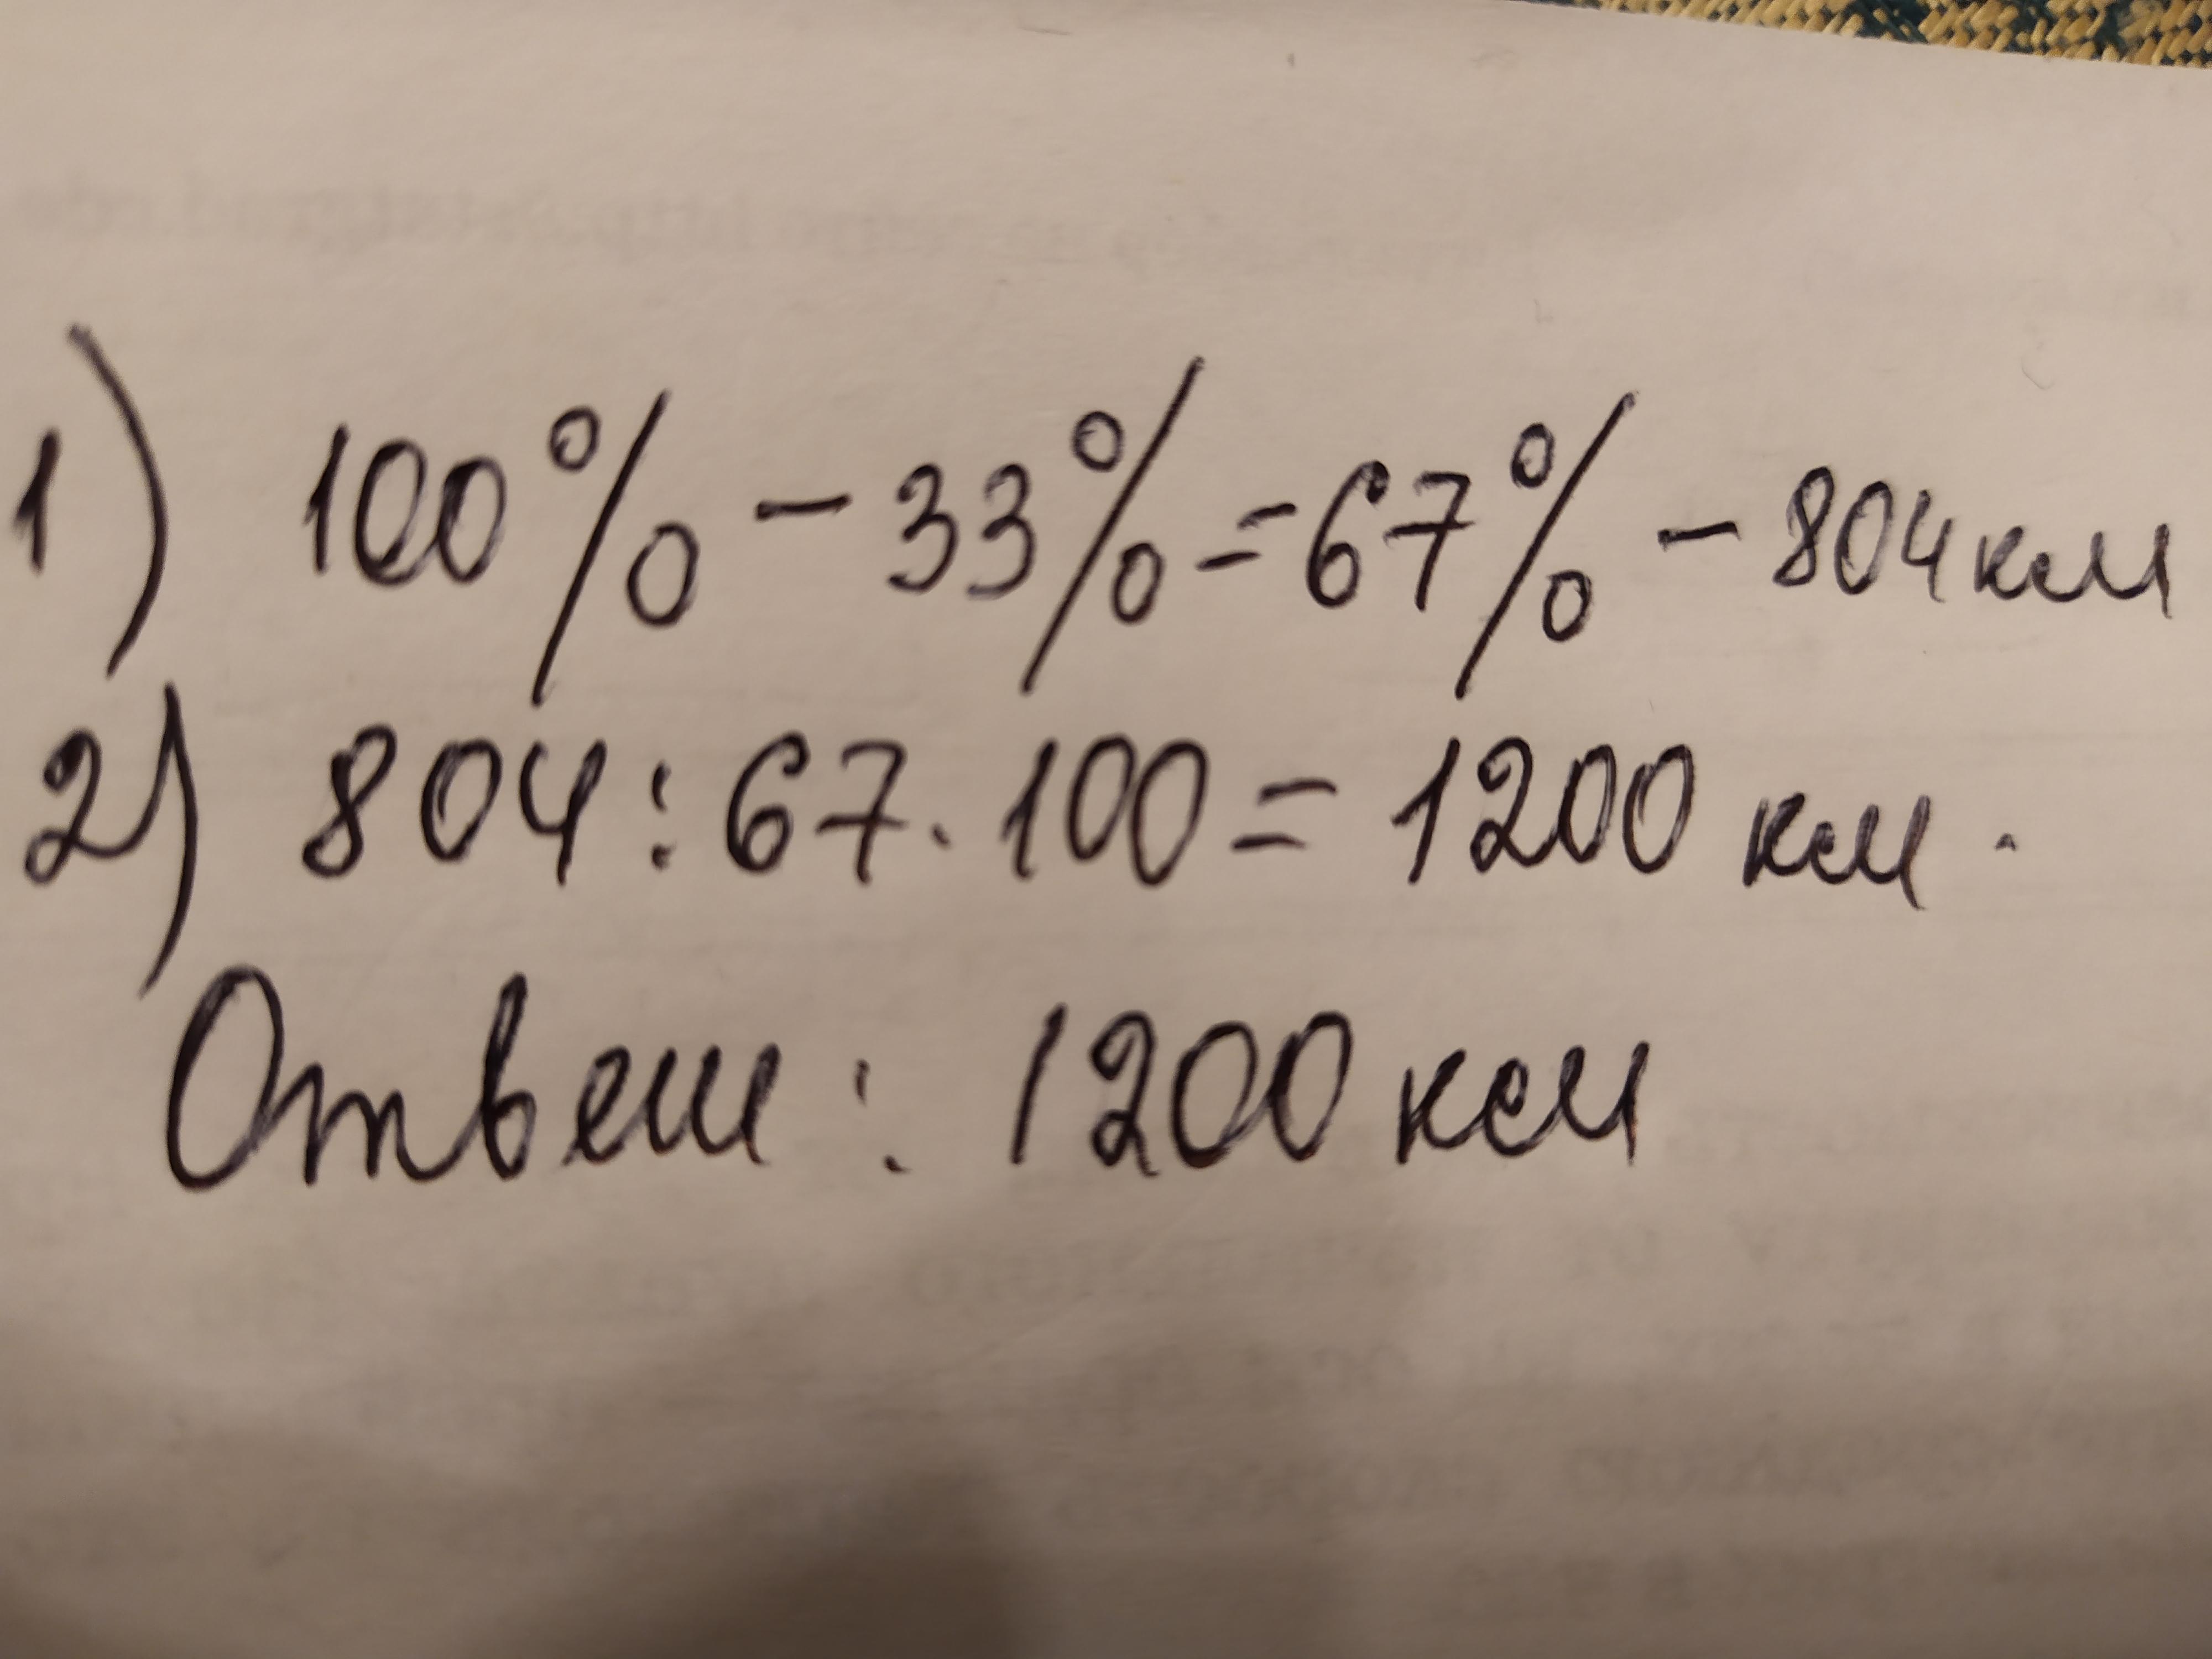 1) 100% - 33% = 67% - 804 км
2) 804 : 67 · 100 = 1200 км.
Ответ : 1200 км